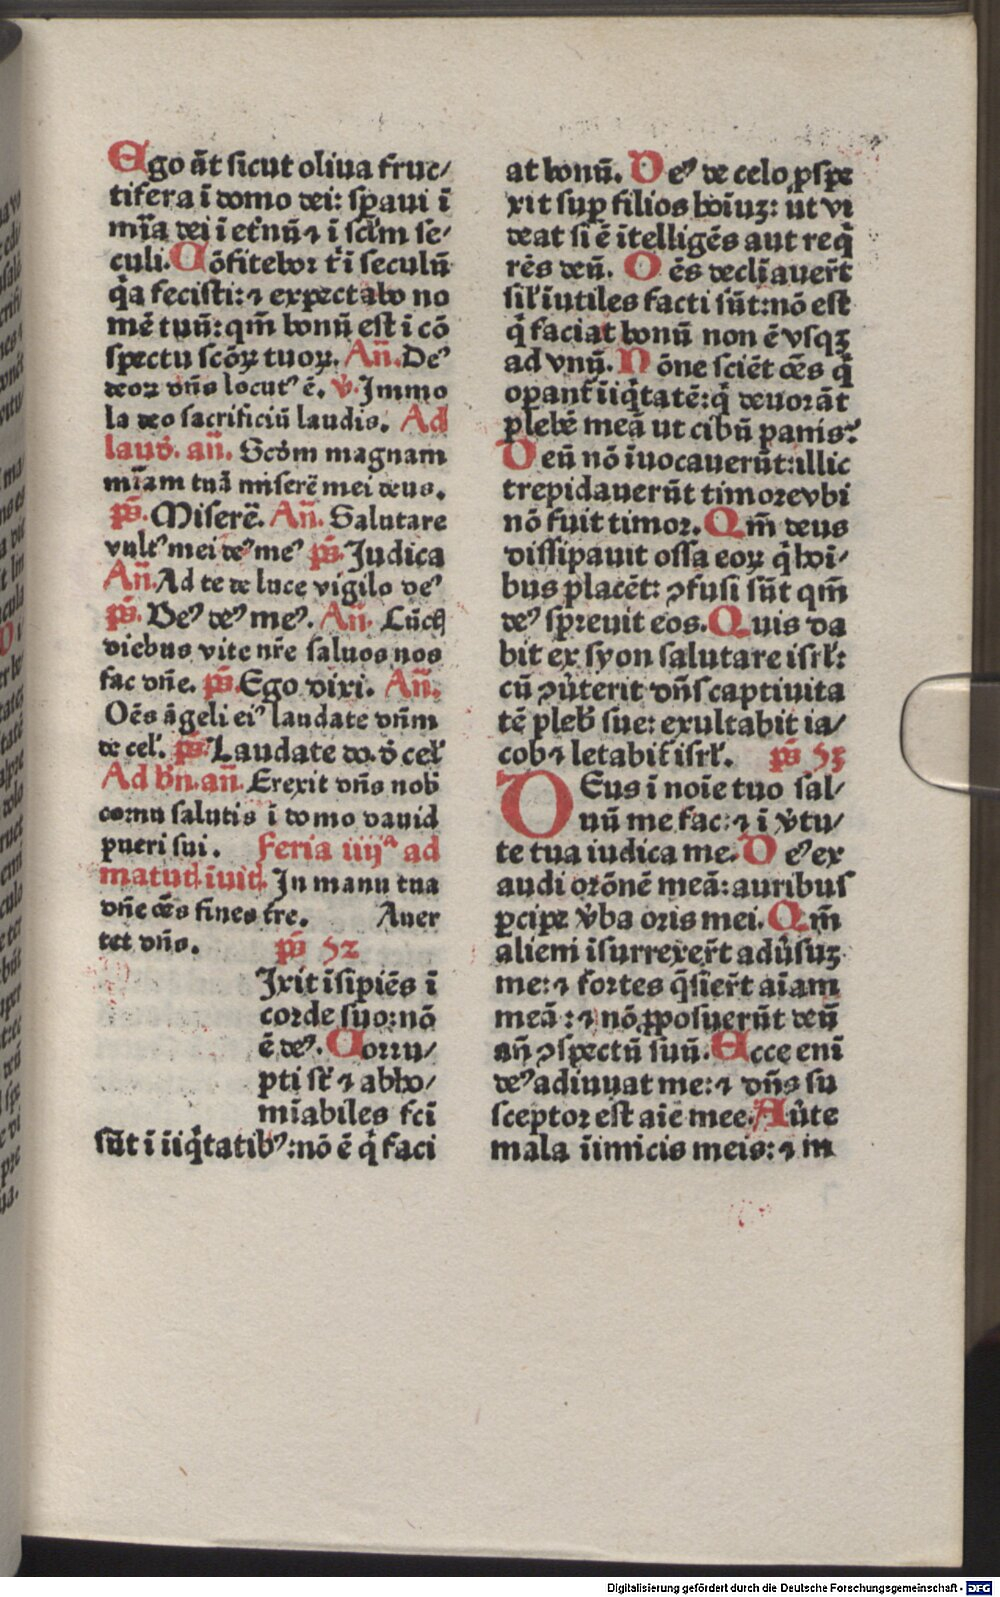 Ego āt sicut oliua fruc/
tifera ī domo dei: sꝑaui ī
mīa dei ī et̄nū ⁊ ī sc̄lm se/
culi. Cōfitebor t̄ ī seculū
q̄a fecisti: ⁊ expectabo no
mē tuū: qm̄ bonū est ī cō
spectu scōꝝ tuoꝝ. An̄. De⁹
deoꝝ dn̄s locut⁹ ē. v̄. Immo
la deo sacrificiū laudis. Ad
laud̄. an̄. Scd̄m magnam
mīam tuā miserē mei deus.
ps̄. Miserē. An̄. Salutare
vult⁹ mei de⁹ me⁹ ps̄. Judica
An̄. Ad te de luce vigilo de⁹
ps̄. De⁹ de⁹ me⁹. An̄. Cūctꝭ
diebus vite nr̄e saluos nos
fac dn̄e. ps̄. Ego dixi. An̄.
Oēs āgeli ei⁹ laudate dn̄m
de cel̄. ps̄. Laudate do. d̄ cel̄
Ad bn̄. an̄. Erexit dn̄s nob̄
cornu salutis ī domo dauid
pueri sui. Feria iiijᵃ ad
matut̄. īuit̄. In manu tua
dn̄e oēs fines tr̄e. Auer
tet dn̄s. ps̄ 52
Ixit īsipiēs ī
corde suo: nō
ē de⁹. Corru/
pti st̄ ⁊ abho/
mīabiles fc̄i
sūt ī iīq̄tatib⁹: nō ē q̄ faci
at bonū. De⁹ de celo ꝓspe
xit suꝑ filios hoīuꝫ: ut vi
deat si ē ītelligēs aut req̄
rēs deū. Oēs declīauer̄t
sil̄ īutiles facti sūt: nō est
q̄ faciat bonū non ē vsqꝫ
ad vnū. Nōne sciēt oēs q̄
oꝑant̄ iīq̄tatē: q̄ deuorāt
plebē meā ut cibū panis?
Deū nō īuocauerūt: illic
trepidauerūt timore vbi
nō fuit timor. Qm̄ deus
dissipauit ossa eoꝝ q̄ hoī/
bus placēt: ꝯfusi sūt qm̄
de⁹ spreuit eos. Quis da
bit ex syon salutare isrl̄:
cū ꝯūterit dn̄s captiuita
tē pleb̄ sue: exultabit ia/
cob ⁊ letabit̄ isrl̄. ps̄ 53
DEus ī noīe tuo sal/
uū me fac: ⁊ ī v̄tu/
te tua iudica me. De⁹ ex
audi orōnē meā: auribus
ꝑcipe v̄ba oris mei. Qm̄
alieni īsurrexer̄t adūsuꝫ
me: ⁊ fortes q̄sier̄t aīam
meā: ⁊ nō ꝓposuerūt deū
an̄ ꝯspectū suū. Ecce enī
de⁹ adiuuat me: ⁊ dn̄s su
sceptor est aīe mee. Aūte
mala iīmicis meis: ⁊ in
Digitalisierung gefördert durch die Deutsche Forschungsgemeinschaft - DFG